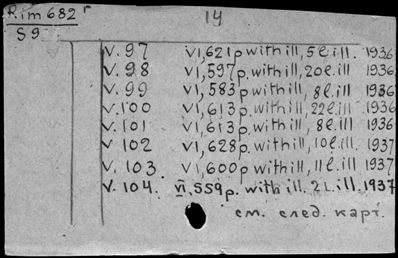 Rim 682 r 14
S9
V. 97 VI, 621 p with ill, 5 l. ill. 1936
V. 98 VI, 597 p. with ill, 20 l. ill 1936
V. 99 VI, 583 p with ill, 8 l. ill 1936
V. 100 VI, 613 p. with ill, 22 l. ill 1936
V. 101 VI, 613 p. with ill, 8 l. ill 1936
V 102 VI, 628 p. with ill, 10 l. ill. 1937
V. 103 VI, 600 p with ill, 11 l. ill 1937
V. 104. VI. 559 p. with ill. 2 L. ill. 1937
см. след. карт.